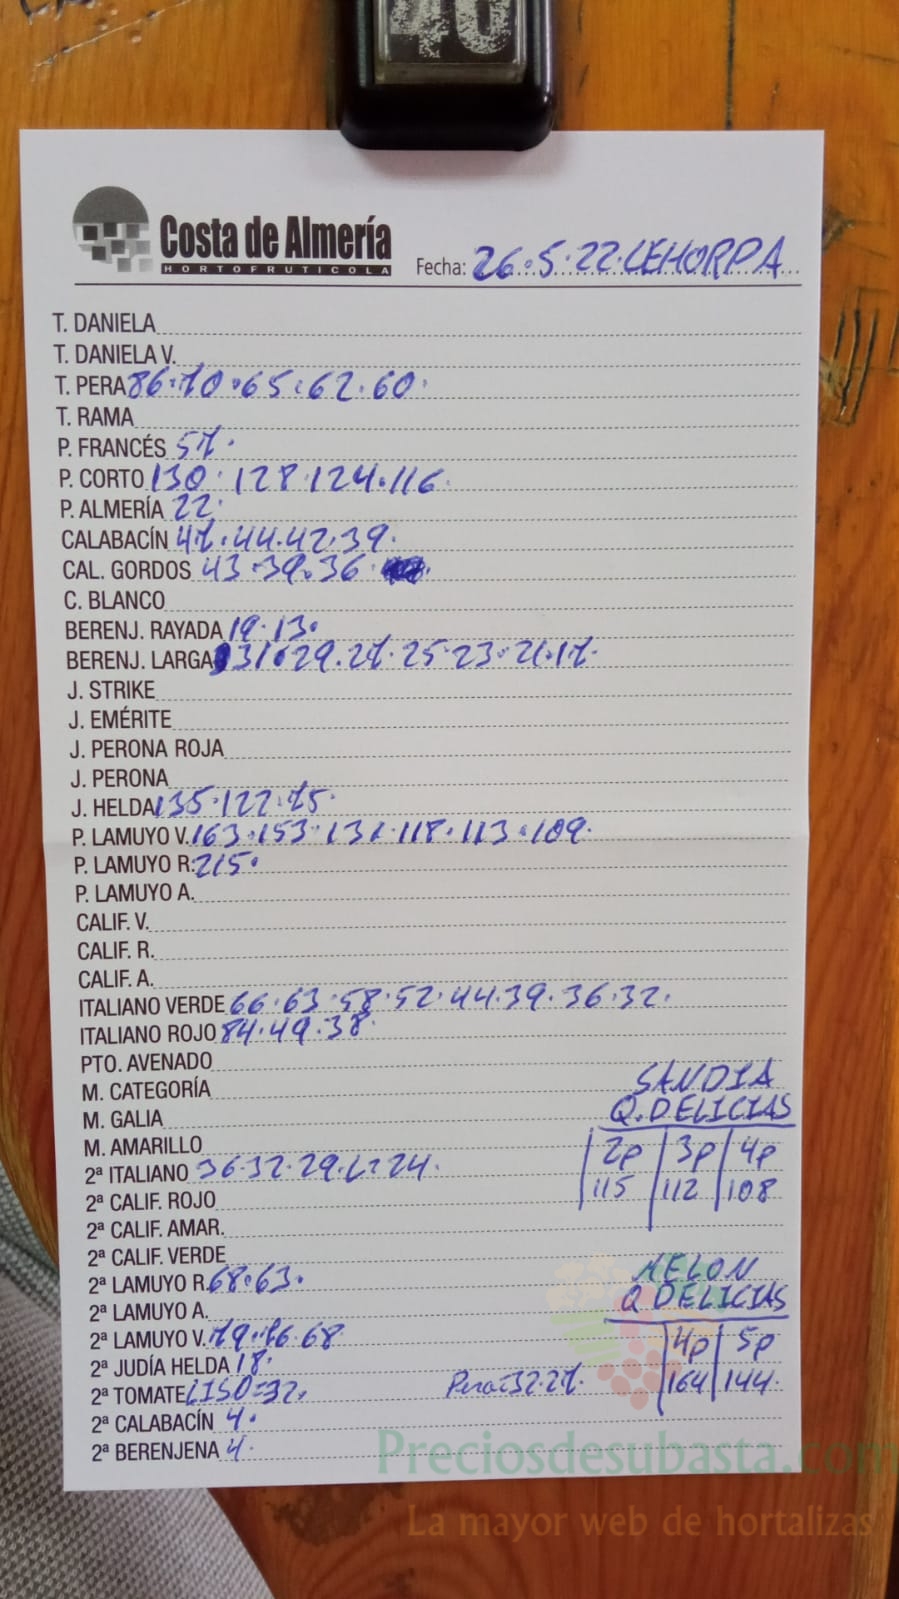 40
Costa de Almería
HORTOFRUTICOLA
Fecha: 26.5.22.CEHORPA
T. DANIELA
T. DANIELA V.
T. PERA 86.70.65.62.60.
T. RAMA
P. FRANCÉS 57.
P. CORTO 130.128.124.116
P. ALMERÍA 22.
CALABACÍN 47.44.42.39.
CAL. GORDOS 43.39.36.
C. BLANCO
BERENJ. RAYADA 19.13.
BERENJ. LARGA 31.29.27.25.23.21.17.
J. STRIKE
J. EMÉRITE
J. PERONA ROJA
J. PERONA
J. HELDA 135.122.75.
P. LAMUYO V. 163.153.131.118.113.109.
P. LAMUYO R. 215.
P. LAMUYO A.
CALIF. V.
CALIF. R.
CALIF. A.
ITALIANO VERDE 66.63.58.52.44.39.36.32.
ITALIANO ROJO 84.49.38.
PTO. AVENADO
M. CATEGORÍA
M. GALIA
M. AMARILLO
2ª ITALIANO 36.32.29.27.24.
2ª CALIF. ROJO
2ª CALIF. AMAR.
2ª CALIF. VERDE
2ª LAMUYO R. 68.63.
2ª LAMUYO A.
2ª LAMUYO V. 79.76.68
2ª JUDÍA HELDA 18.
2ª TOMATE LISO=32. Pera=32.27.
2ª CALABACÍN 4.
2ª BERENJENA 4.
SANDIA
Q.DELICIAS
2p 3p 4p
115 112 108
MELON
Q DELICIAS
4p 5p
164 144
Preciosdesubasta.com
La mayor web de hortalizas